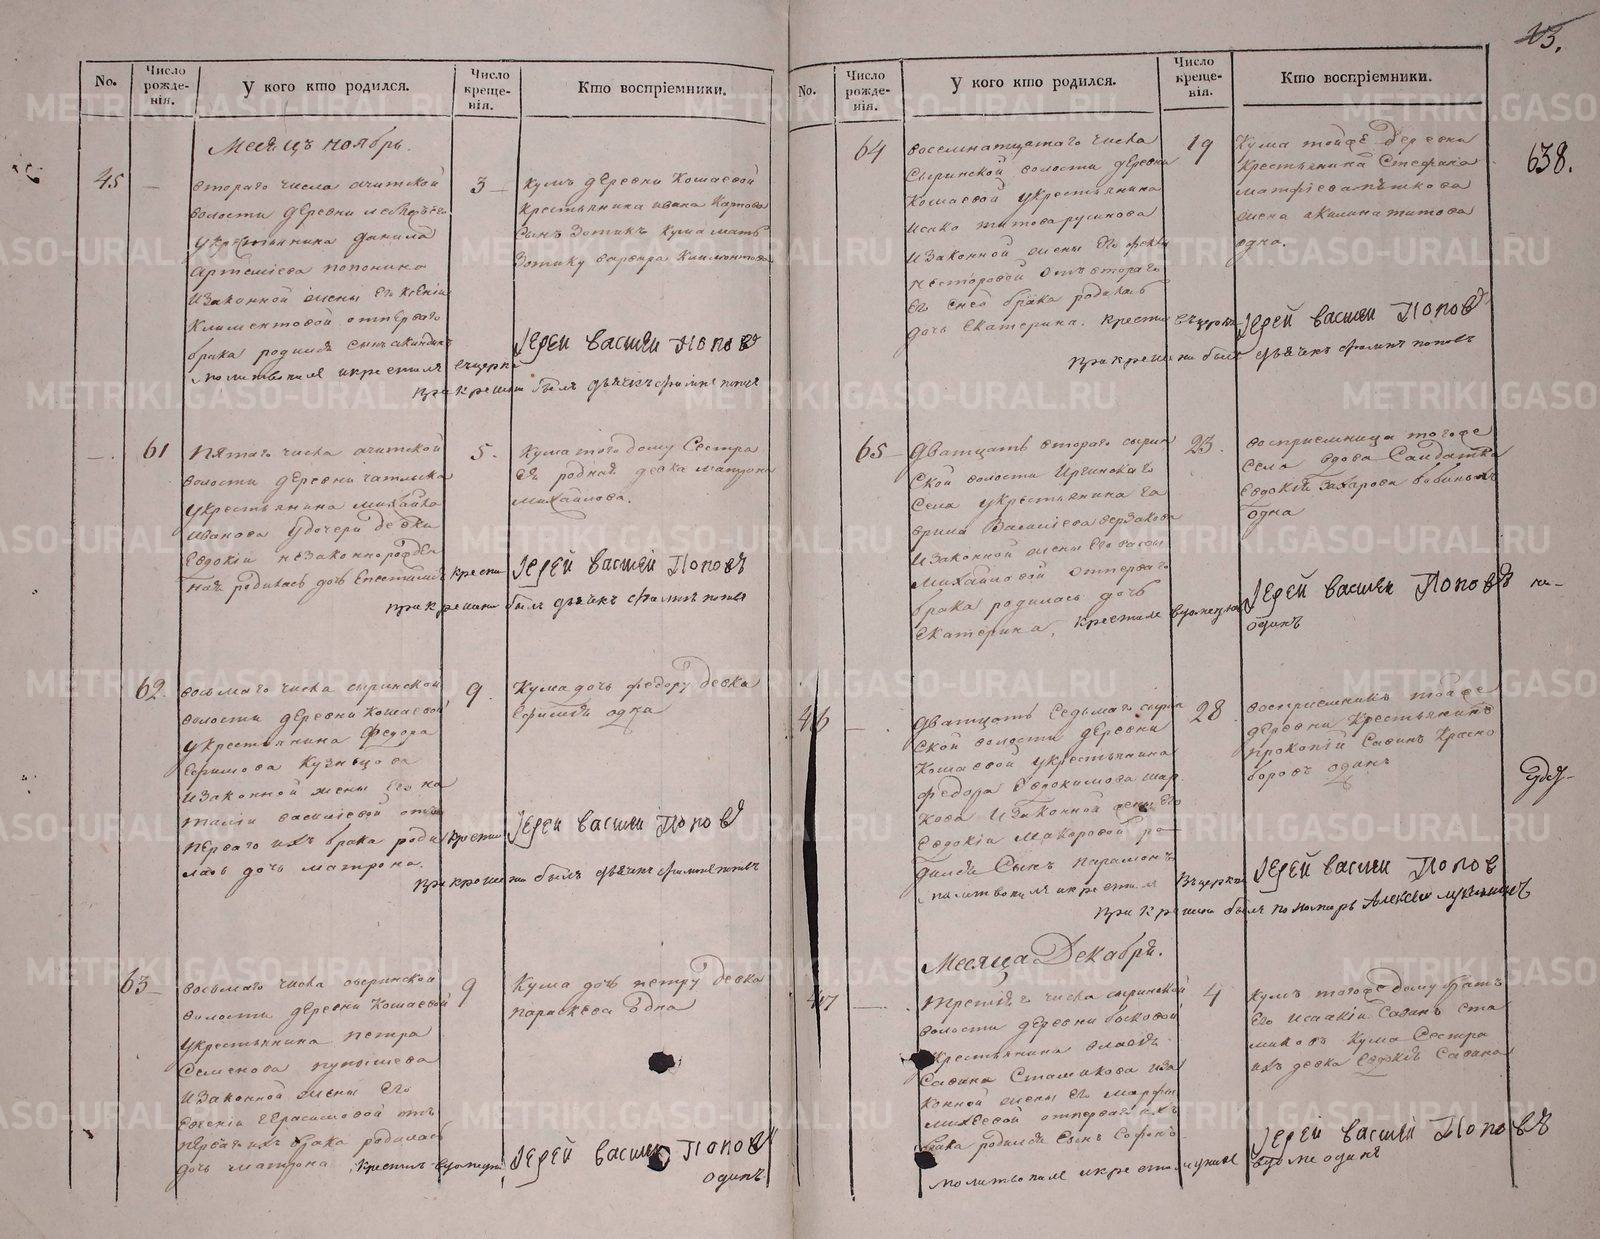 No.
Число рожденія.
У кого кто родился.
Число крещенія.
Кто воспріемники.
Месяцъ ноябрь.
45
3
втораго числа ачитской
волости деревни
укрестьянина данила
артемиева попонина
изаконной жены его ксении
Климентовой отпервого
брака родился сынъ акиндинъ
молитвовалъ икрестилъ вцеркве
кумъ деревни Кошаевой
крестьянина ивана Карпова
Сынъ Зотикъ кума мать
Зотику варвара Климонтова
Іерей василеи Поповъ
прикрещении былъ дьячекъ филипъ поповъ
61
5.
Пятаго числа ачитской
волости деревни
укрестьянина михайла
иванова удочери девки
Евдокіи незаконнорожден
ная родилась дочь крестилъ
Кума того дому Сестра
ей родная девка матрона
михайлова.
Іерей василеи Поповъ
прикрещении былъ дьячекъ филипъ поповъ
62.
9.
восьмаго числа сыринской
волости деревни Кошаевой
укрестьянина Федора
Ефимова Кузнецова
изаконной жены его на
талии василиевой отъ
перваго ихъ брака роди
лась дочь матрона. крестилъ
Кума дочь федору девка
Ефимия одна
Іерей василеи Поповъ
прикрещении былъ дьячекъ филипъ поповъ
63
9
восьмаго числа сыринской
волости деревни Кошаевой
укрестьянина петра
Семенова
изаконной жены его
евгении герасимовой отъ
перваго ихъ брака родилась
дочь матрона крестилъ
Кума дочь петру девка
параскева одна
Іерей василеи Поповъ
одинъ
No.
Число рожденія.
У кого кто родился.
Число крещенія.
Кто воспріемники.
23.
638.
64
19
восемнатцатаго числа
Сыринской волости деревни
Кошаевой укрестьянина
исако титова русинова
изаконной жены его феклы
несторовой отъ втораго
его сней брака родилась
дочь Екатерина. крестилъ вцеркве
Кума тойже деревни
крестьянина Стефана
матфиева
жена акилина титова
одна.
Іерей василеи Поповъ
прикрещении былъ дьячекъ филипъ поповъ
65
23.
дватцать втораго сырин
ской волости Иргинскаго
села укрестьянина га
врила Василиева
изаконной жены его
михайловой отпервого
брака родилась дочь
Екатерина, крестилъ
восприемница тогоже
села вдова Салдатка
Евдокия Захарова
одна
Іерей василеи Поповъ
одинъ
46
28
дватцать седьмаго сырин
ской волости деревни
Кошаевой укрестьянина
федора Евдокимова шар
кова изаконной жены его
евдокіи макаровой ро
дился Сынъ парамонъ
молитвовалъ икрестилъ вцеркве
восприемникъ тойже
деревни Крестьянинъ
прокопій Савинъ Красно
боровъ одинъ
Іерей василеи Поповъ
прикрещении былъ пономарь Алексеи
Месяца Декабря.
47
4
третияго числа сыринской
волости деревни
укрестьянина
Савина Стамикова иза
конной жены его марфы
михеевой отперваго ихъ
брака родился сынъ Софонъ
молитвовалъ икрестилъ
кумъ тогоже дому братъ
его исаакіи Савинъ Ста
миковъ Кума Сестра
ихъ девка Савина
Іерей василеи Поповъ
вдоме одинъ
METRIKI.GASO-URAL.RU